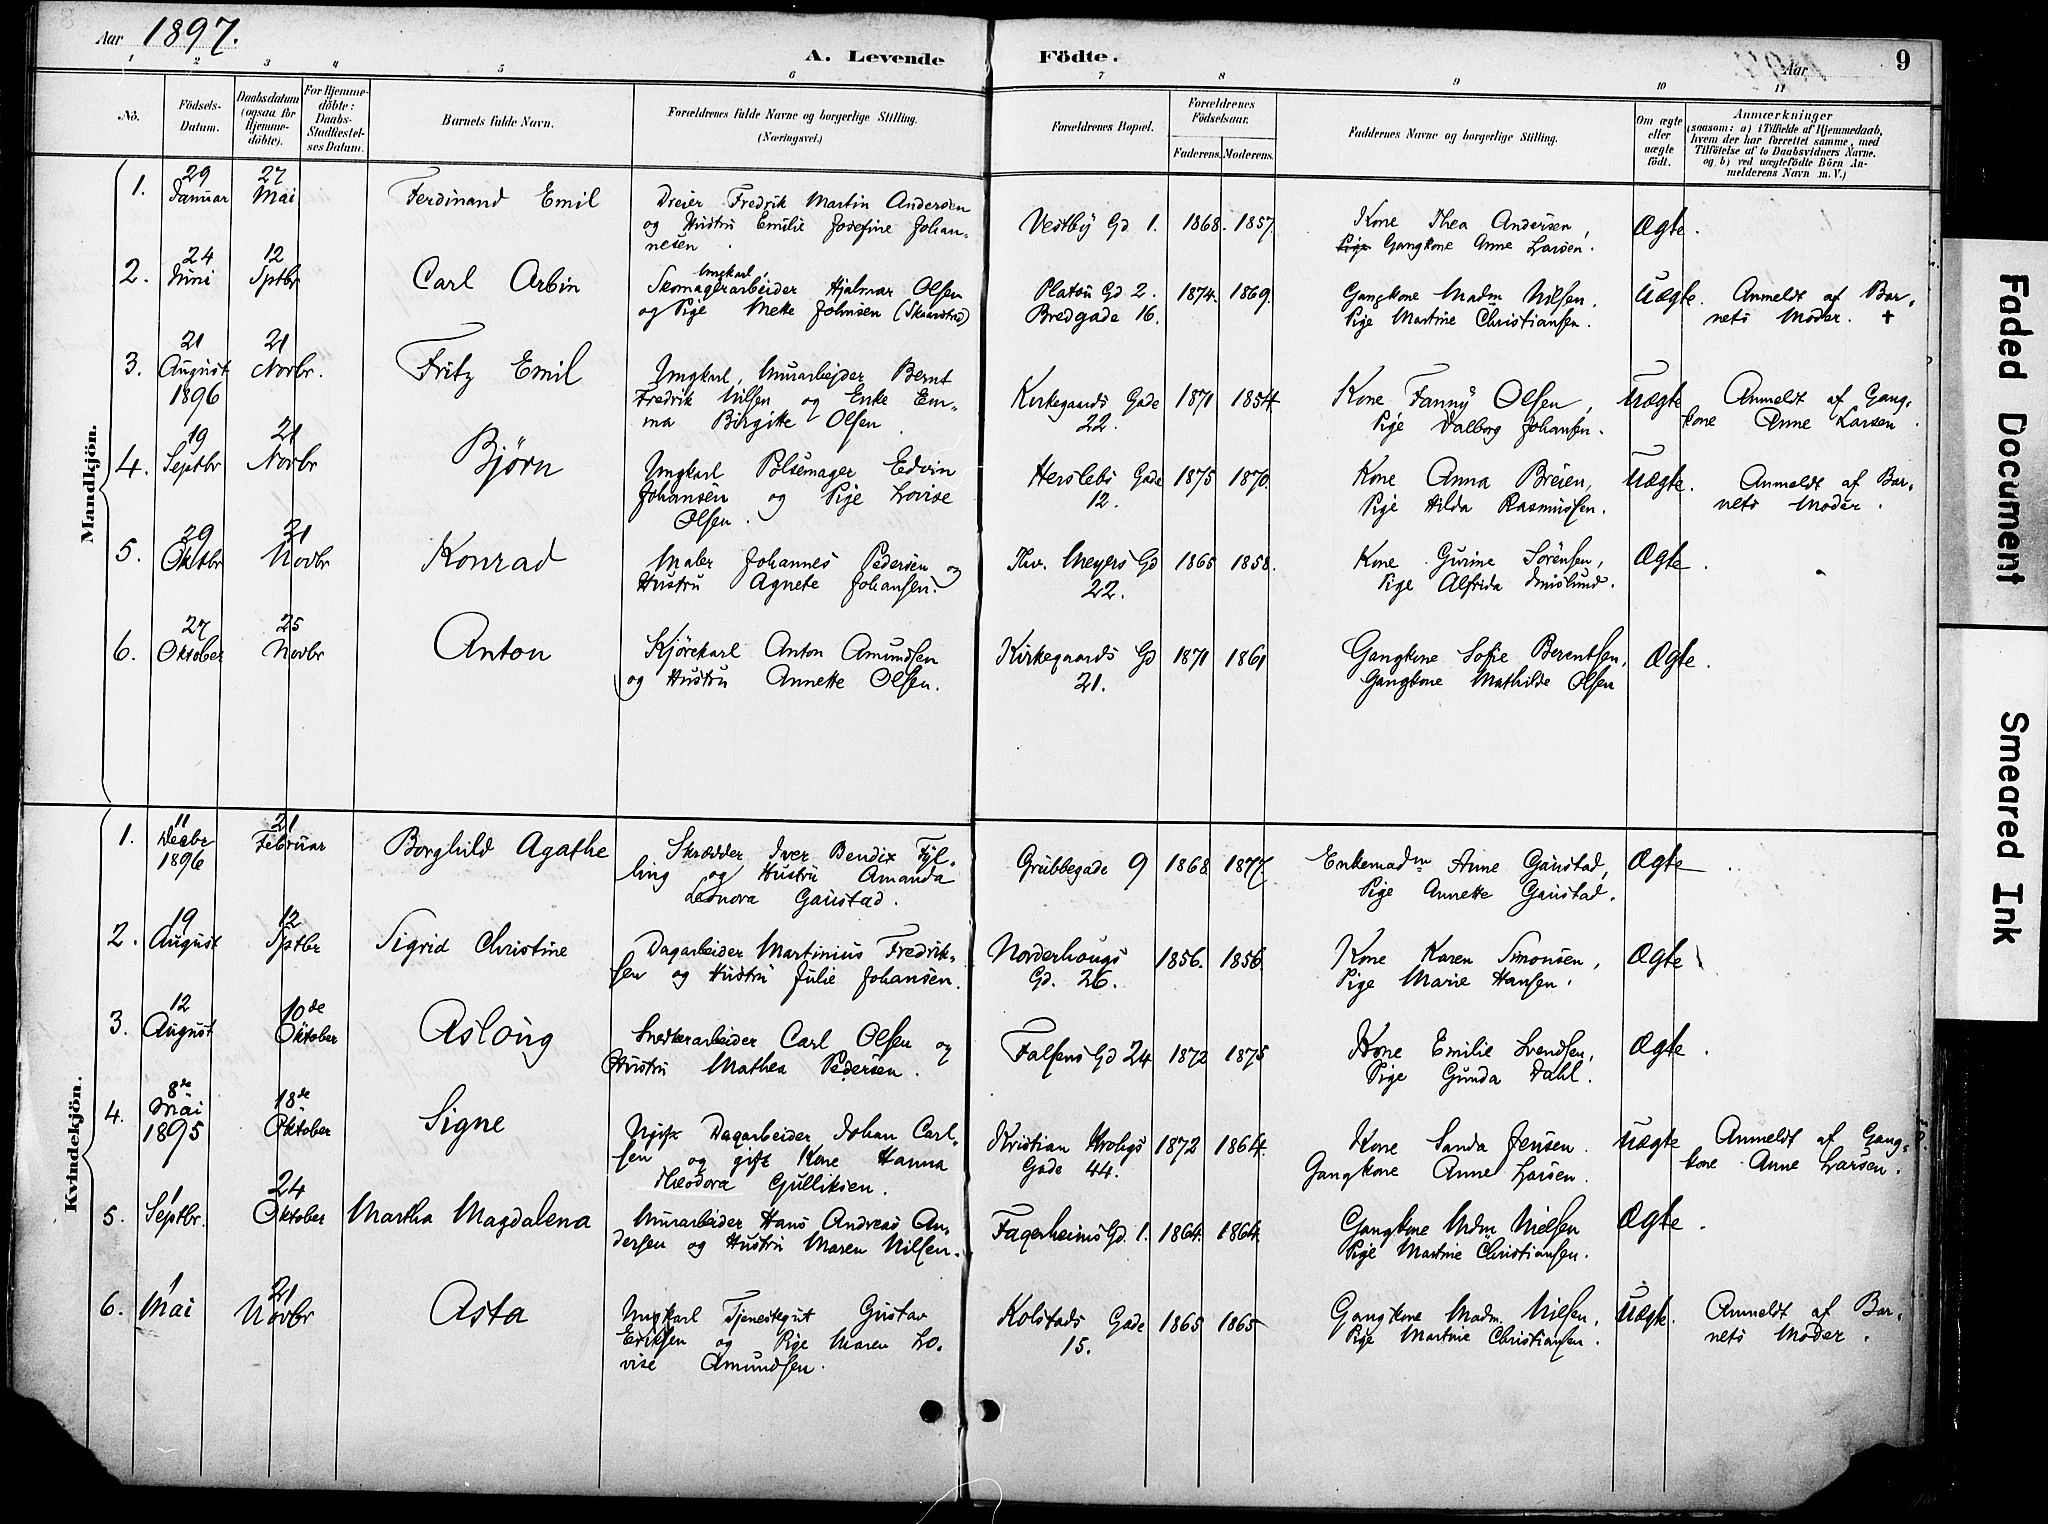 Aar 1897.
A. Levende Födte.
Aar
9
1 2 3 4 5 6 7 8 9 10 11
No.
Födsels-Datum.
Daabsdatum (ogsaa for Hjemme-döbte).
For Hjemme-döbte: Daabs-Stadfæstel-ses Datum.
Barnets fulde Navn.
Forældrenes fulde Navne og borgerlige Stilling.
(Næringsvei.)
Forældrenes Bopæl.
Forældrenes Födselsaar.
Faderens. Moderens.
Faddernes Navne og borgerlige Stilling.
Om ægte eller uægte födt.
Anmærkninger
(saasom: a) i Tilfælde af Hjemmedaab, hvem der har forrettet samme, med Tilföielse af to Daabsvidners Navne. og b) ved uægtefödte Börn An-melderens Navn m. V.)
Mandkjön.
1. 29 Januar 27 Mai Ferdinand Emil
Dreier Fredrik Martin Andersen
og Hustru Emilie Josefine Johan-
nesen.
Vestby Gd 1. 1868. 1857.
Kone Thea Andersen,
Gangkone Anne Larsen.
Ægte.
2. 24 Juni 12 Sptbr Carl Arbin
Ungkarl,
Skomagerarbeider Hjalmar Olsen
og Pige Mette Johnsen (Skaanstad)
Platou Gd 2. 1874. 1869.
Bredgade 16.
Gangkone Madm Nilsen.
Pige Martine Christiansen.
Uægte. Anmeldt af Bar-
nets Moder. +
3. 21 August 1896 21 Novbr. Fritz Emil
Ungkarl, Murarbejder Bernt
Fredrik Nilsen og Enke Em-
ma Birgitte Olsen
Kirkegaards Gade 22. 1871 1854
Kone Fanny Olsen,
Pige Valborg Johansen.
Uægte Anmeldt af Gang-
kone Anne Larsen.
4. 19 Septbr 21 Novbr Bjørn
Ungkarl Pølsemager Edvin
Johansen og Pige Lovise
Olsen.
Herslebs Gade 12. 1875 1870.
Kone Anna Breien,
Pige Hilda Rasmussen.
Uægte. Anmeldt af Bar-
nets Moder.
5. 29 Oktbr 21 Novbr Konrad
Maler Johannes Pedersen og
Hustru Agnete Johansen.
Thv. Meyers Gd 22. 1865 1858.
Kone Gurine Sörensen,
Pige Alfrida Smislund.
Ægte.
6. 27 Oktober 25 Novbr Anton
Kjørekarl Anton Amundsen
og Hustru Annette Olsen.
Kirkegaards Gd 21. 1871 1861
Gangkone Sofie Berentsen,
Gangkone Mathilde Olsen
Ægte.
Kvindekjön.
1. 11 Decbr 1896 21 Februar Borghild Agathe
Skrædder Iver Bendix Fyl-
ling og Hustru Amanda
Leonora Gaustad.
Grubbegade 9 1868 1877.
Enkemadm Anne Gaustad,
Pige Annette Gaustad.
Ægte
2. 19 August 12 Sptbr Sigrid Christine
Dagarbeider Martinius Fredrik-
sen og Hustru Julie Johansen.
Norderhougs Gd. 26. 1856. 1856.
Kone Karen Simonsen,
Pige Marie Hansen.
Ægte
3. 12 August 10de Oktober Aslaug
Snedkerarbeider Carl Olsen og
Hustru Mathea Pedersen.
Falsens Gd 24 1872 1875
Kone Emilie Svendsen,
Pige Gunda Dahl.
Ægte.
4. 8de Mai 1895 18de Oktober Signe
Ugift Dagarbeider Johan Carl-
sen og gift Kone Hanna
Theodora Gulliksen.
Kristian Krohgs Gade 44. 1872 1864.
Kone Sanda Jensen.
Gangkone Anne Larsen.
Uægte Anmeldt af Gang-
kone Anne Larsen.
5. 1 Septbr. 24 Oktober Martha Magdalena
Murarbeider Hans Andreas An-
dersen og Hustru Maren Nilsen.
Fagerheims Gd. 1. 1864. 1864.
Gangkone Mdm. Nielsen
Pige Martine Christiansen.
Ægte.
6. 1 Mai 21 Novbr Asta
Ungkarl Tjenestegut Gustav
Eriksen og Pige Maren Lo-
vise Amundsen.
Kolstads Gade 15. 1865 1865
Gangkone Madm. Nielsen,
Pige Martine Christiansen.
Uægte. Anmeldt af Bar-
nets Moder.
Faded Document
Smeared Ink